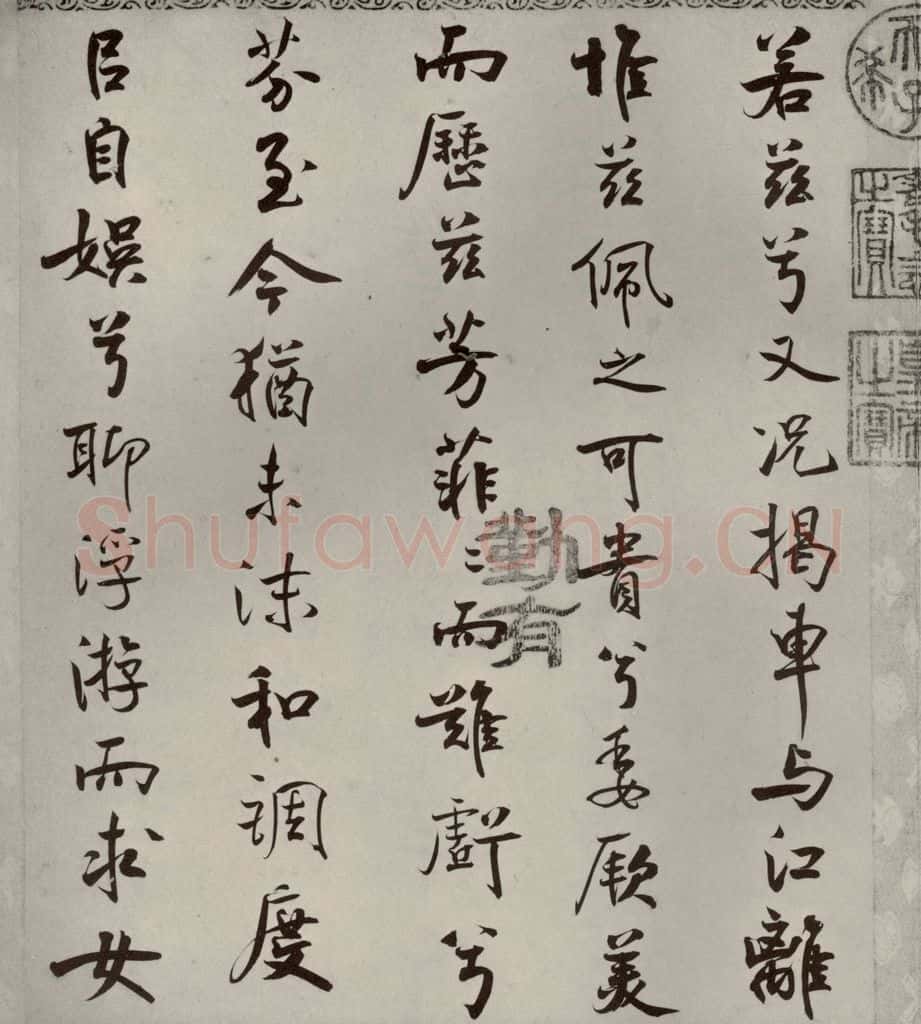 若茲兮又況揭車与江離
惟茲佩之可貴兮委厥美
而歷茲芳菲〻而難虧兮
芬至今猶未沫和調度
㠯自娛兮聊浮游而求女
勤有
Shufawang.cn